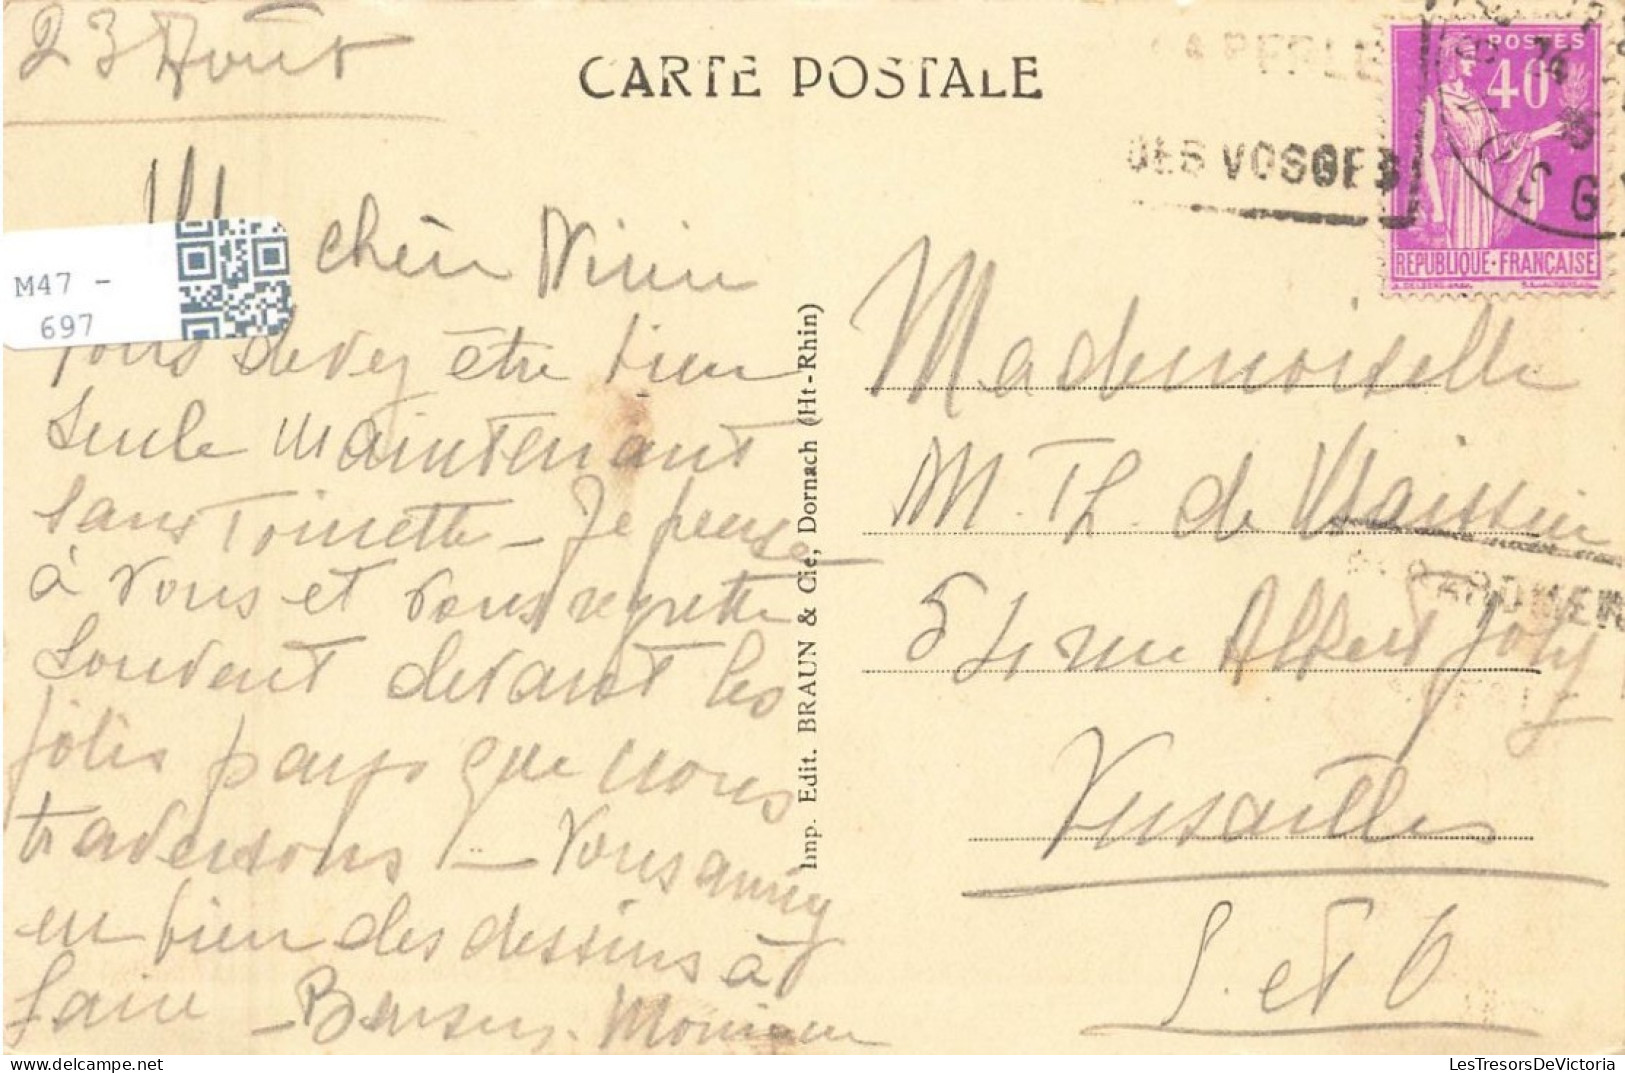 23 Août
CARTE POSTALE
LA PERLE
DES VOSGES
POSTES
40
REPUBLIQUE·FRANÇAISE
M47 -
697
chère
Vous devez être bien
seule maintenant
sans Toinette - Je pense
à vous et vous regrette
souvent devant les
jolis pays que nous
traversons - Vous auriez
eu bien des dessins à
faire - Baisers. Monique
Imp. Edit. BRAUN & Cie, Dornach (Ht-Rhin)
Mademoiselle
M. Th. de
GERARDMER
54 rue Albert Joly
Versailles
S. et O
LesTresorsDeVictoria